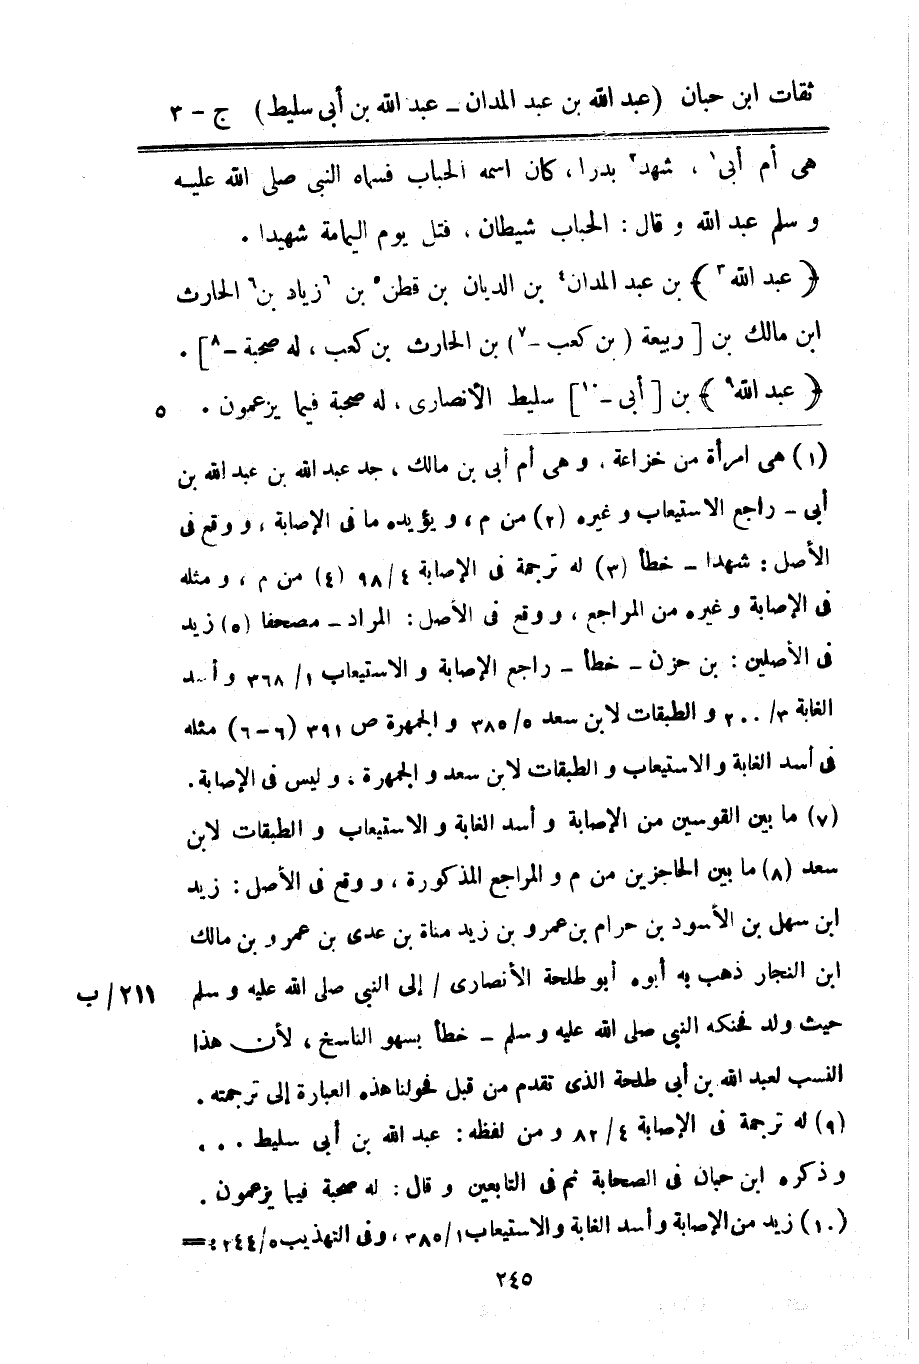 ثقات ابن حبان (عبد الله بن عبد المدان ــ عبد الله بن أبى سليط) ج - ٣
هى أم أبى١ ، شهد٢ بدرا ، كان اسمه الحباب فسماه النبى صلى الله عليـه
و سلم عبد الله و قال : الحباب شيطان ، فتل يوم اليمامة شهيدا .
﴿ عبد الله٣ ﴾ بن عبد المدان٤ بن الديان بن قطن٥ بن ٦زياد بن٦ الحارث
ابن مالك بن [ ربيعة ( بن كعب -٧) بن الحارث بن كعب ، له صحبة -٨] .
﴿ عبد الله٩ ﴾ بن [ أبى -١٠ ] سليط الأنصارى ، له صحبة فيما يزعمون . ٥
(١) هى امرأة من خزاعة ، و هى أم أبى بن مالك ، جد عبد الله بن عبد الله بن
أبى - راجع الاستيعاب و غيره (٢) من م ، و يؤيده ما فى الإصابة ، و وقع فى
الأصل : شهدا - خطأ (٣) له ترجمة فى الإصابة ٤/ ٩٨ (٤) من م ، و مثله
فى الإصابة و غيره من المراجع ، و وقع فى الأصل : المراد - مصحفا (٥) زيد
فى الأصلين : بن حزن - خطأ - راجع الإصابة و الاستيعاب ١/ ٣٦٨ و أسد
الغابة ٣/ ٢٠٠ و الطبقات لابن سعد ٥/ ٣٨٥ و الجمهرة ص ٣٩١ (٦-٦) مثله
فى أسد الغابة و الاستيعاب و الطبقات لابن سعد و الجمهرة ، و ليس فى الإصابة .
(٧) ما بين القوسين من الإصابة و أسد الغابة و الاستيعاب و الطبقات لابن
سعد (٨) ما بين الحاجزين من م و المراجع المذكورة ، و وقع فى الأصل : زيد
ابن سهل بن الأسود بن حرام بن عمرو بن زيد مناة بن عدى بن عمرو بن مالك
ابن النجار ذهب به أبوه أبو طلحة الأنصارى / إلى النبي صلى الله عليه و سلم ٢١١/ ب
حيث ولد فحنكه النبي صلى الله عليه و سلم - خطأ بسهو الناسخ ، لأن هذا
النسب لعبد الله بن أبى طلحة الذى تقدم من قبل فحولنا هذه العبارة إلى ترجمته .
(٩) له ترجمة فى الإصابة ٤/ ٨٢ و من لفظه : عبد الله بن أبى سليط . . .
و ذكره ابن حبان فى الصحابة ثم فى التابعين و قال : له صحبة فيما يزعمون .
(١٠) زيد من الإصابة و أسد الغابة والاستيعاب ١/ ٣٨٥ ، وفى التهذيب ٥/ ٢٤٤ : =
٢٤٥